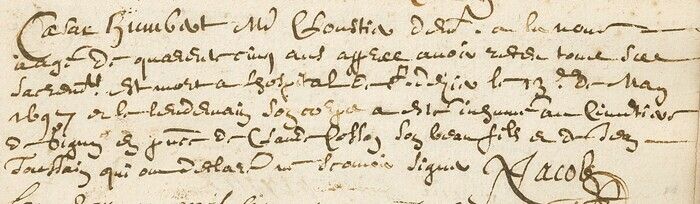 Cesar Humbert Me Cloustier dem.
aagé de quarente cinq ans apprez avoir receu tous ses
sacremts. est mort a l'hospital de St. le 13e. de May
1697 et le lendemain son corps a esté inhumé au Cimetiere
de en pnce de Claude Cosson son beau fils et de Jean
Toussain qui ont declaré ne scavoir signer Jacob